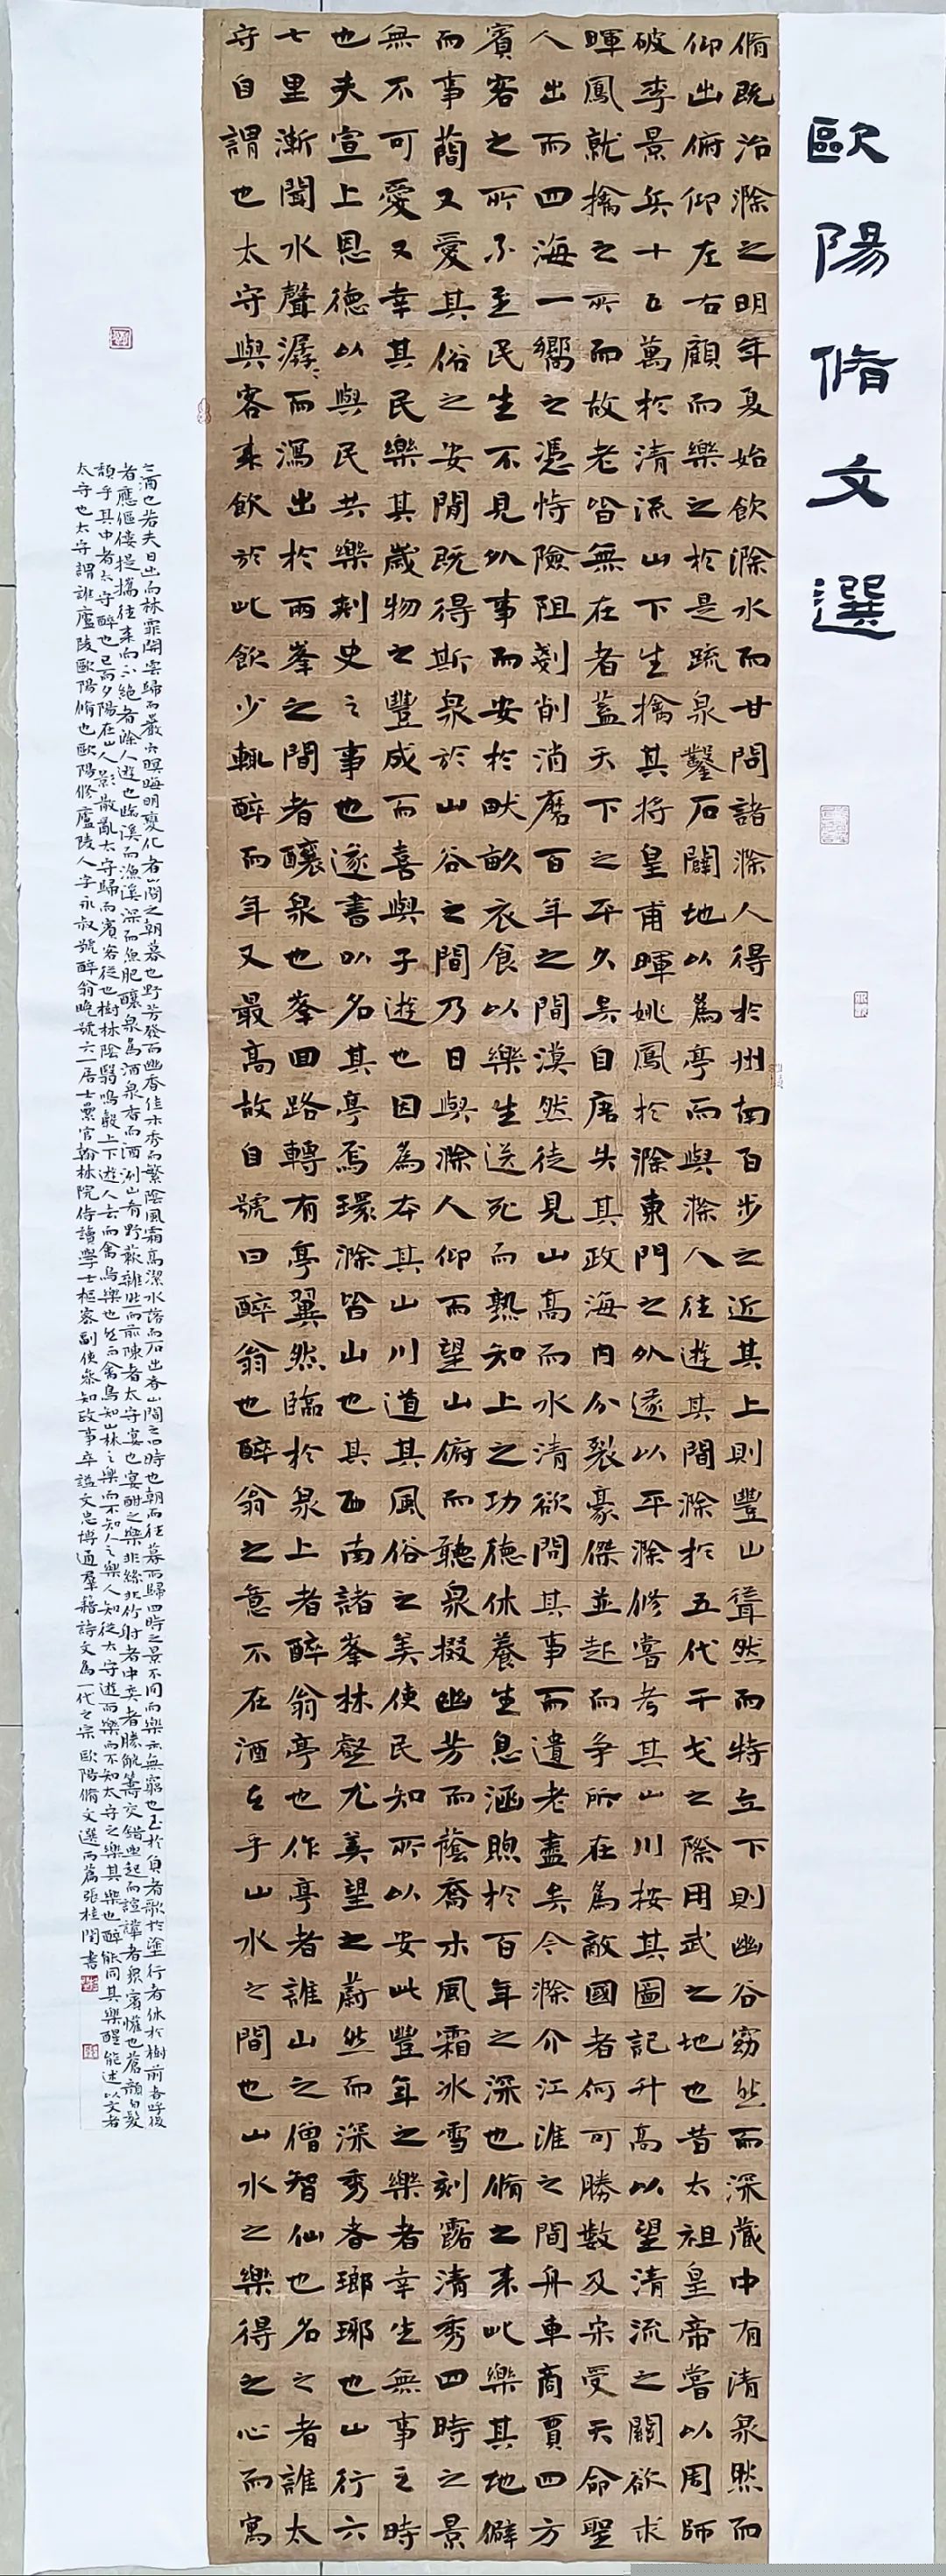 歐陽脩文選
脩既治滁之明年夏始飲滁水而甘問諸滁人得於州南百步之近其上則豐山聳然而特立下則幽谷窈然而深藏中有清泉然而
仰出俯仰左右顧而樂之於是疏泉鑿石闢地以為亭而與滁人往遊其間滁於五代干戈之際用武之地也昔太祖皇帝嘗以周師
破李景兵十五萬於清流山下生擒其將皇甫暉姚鳳於滁東門之外遂以平滁修嘗考其山川按其圖記升高以望清流之關欲求
暉鳳就擒之所而故老皆無在者蓋天下之平久矣自唐失其政海內分裂豪傑並起而爭所在為敵國者何可勝數及宋受天命聖
人出而四海一嚮之憑恃險阻剗削消磨百年之間漠然徒見山高而水清欲問其事而遺老盡矣今滁介江淮之間舟車商賈四方
賓客之所不至民生不見外事而安於畎畝衣食以樂生送死而熟知上之功德休養生息涵煦於百年之深也脩之來此樂其地僻
而事簡又愛其俗之安閒既得斯泉於山谷之間乃日與滁人仰而望山俯而聽泉掇幽芳而蔭喬木風霜冰雪刻露清秀四時之景
無不可愛又幸其民樂其歲物之豐成而喜與予遊也因為本其山川道其風俗之美使民知所以安此豐年之樂者幸生無事之時
也夫宣上恩德以與民共樂刺史之事也遂書以名其亭焉環滁皆山也其西南諸峯林壑尤美望之蔚然而深秀者瑯琊也山行六
七里漸聞水聲潺〻而瀉出於兩峯之間者釀泉也峯回路轉有亭翼然臨於泉上者醉翁亭也作亭者誰山之僧智仙也名之者誰太
守自謂也太守與客來飲於此飲少輒醉而年又最高故自號曰醉翁也醉翁之意不在酒在乎山水之間也山水之樂得之心而寓
之酒也若夫日出而林霏開雲歸而巖穴暝晦明變化者山間之朝暮也野芳發而幽香佳木秀而繁陰風霜高潔水落而石出者山間之四時也朝而往暮而歸四時之景不同而樂亦無窮也至於負者歌於塗行者休於樹前者呼後
者應傴僂提攜往來而不絕者滁人遊也臨溪而漁溪深而魚肥釀泉為酒泉香而酒洌山肴野蔌雜然而前陳者太守宴也宴酣之樂非絲非竹射者中奕者勝觥籌交錯坐起而諠譁者眾賓懽也蒼顏白髮
頹乎其中者太守醉也已而夕陽在山人影散亂太守歸而賓客從也樹林陰翳鳴聲上下遊人去而禽鳥樂也然而禽鳥知山林之樂而不知人之樂人知從太守遊而樂而不知太守之樂其樂也醉能同其樂醒能述以文者
太守也太守謂誰廬陵歐陽脩也歐陽修廬陵人字永叔號醉翁晚號六一居士累官翰林院侍讀學士樞密副使參知政事卒謚文忠博通羣籍詩文為一代之宗 歐陽脩文選兩篇張桂閏書